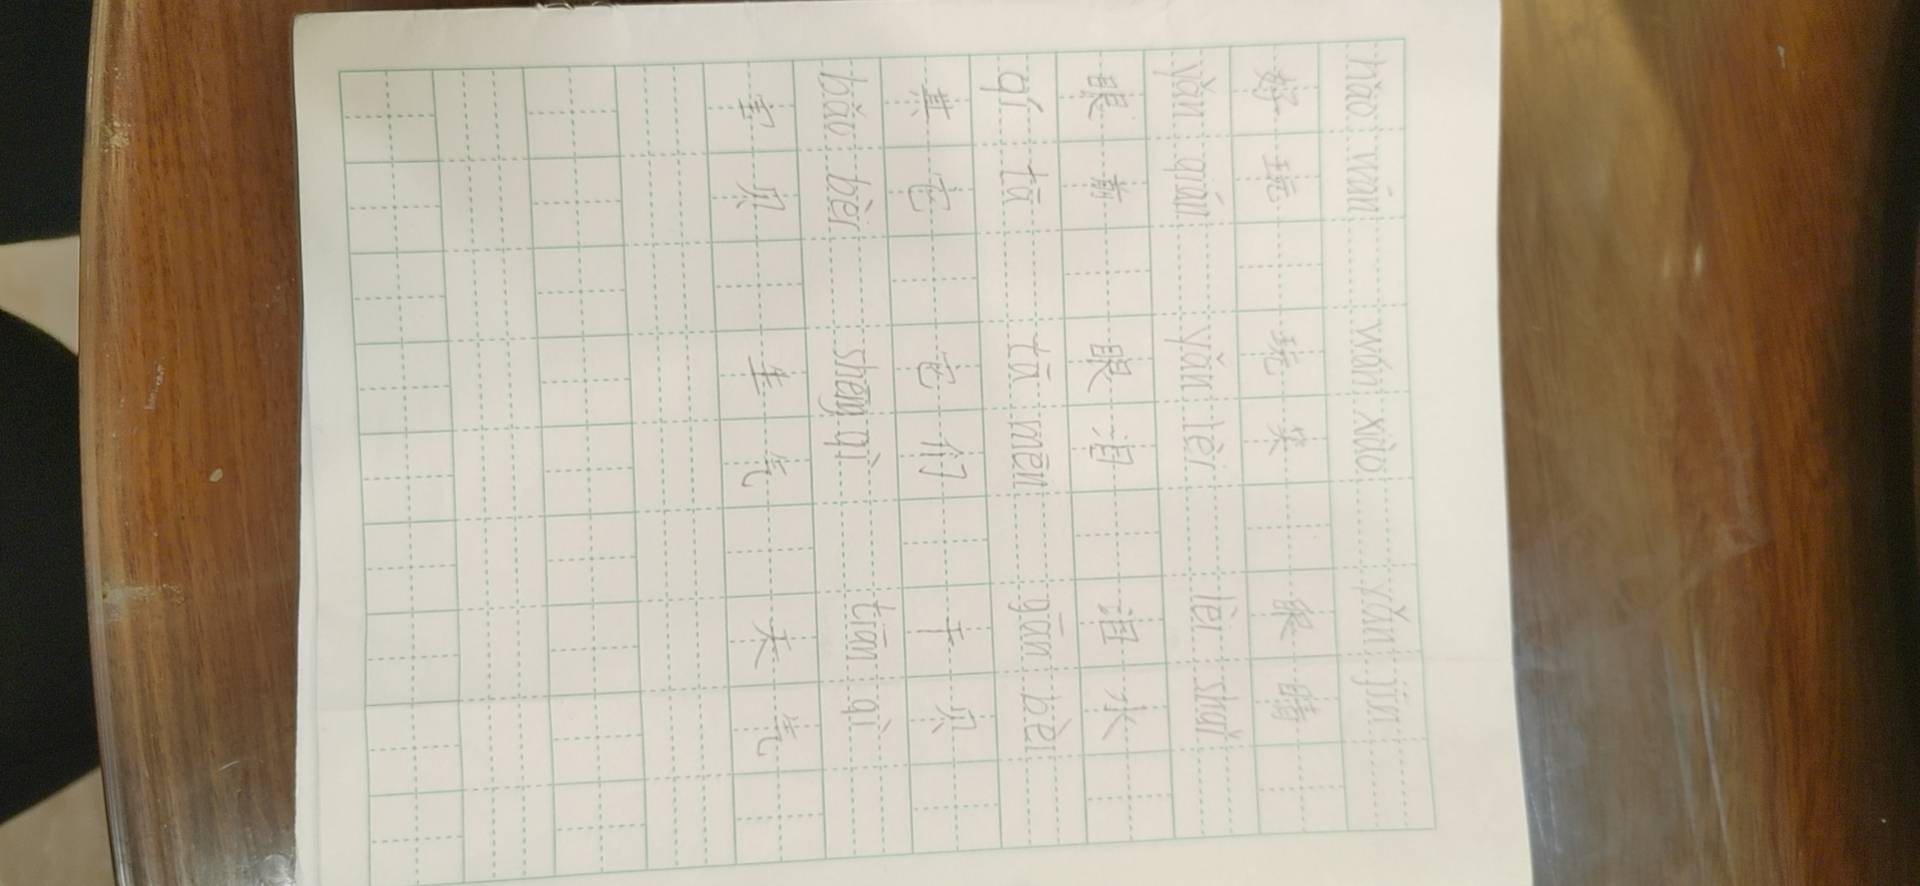 hǎo wán wán xiào yǎn jīn
好 玩 玩 笑 眼 睛
yǎn qiú yǎn lèi lèi shuǐ
眼 眼 泪 泪 水
qí tā tā mēn gān bèi
其 它 它 们 干 贝
bǎo bèi shēng qì tiān qì
宝 贝 生 气 天 气